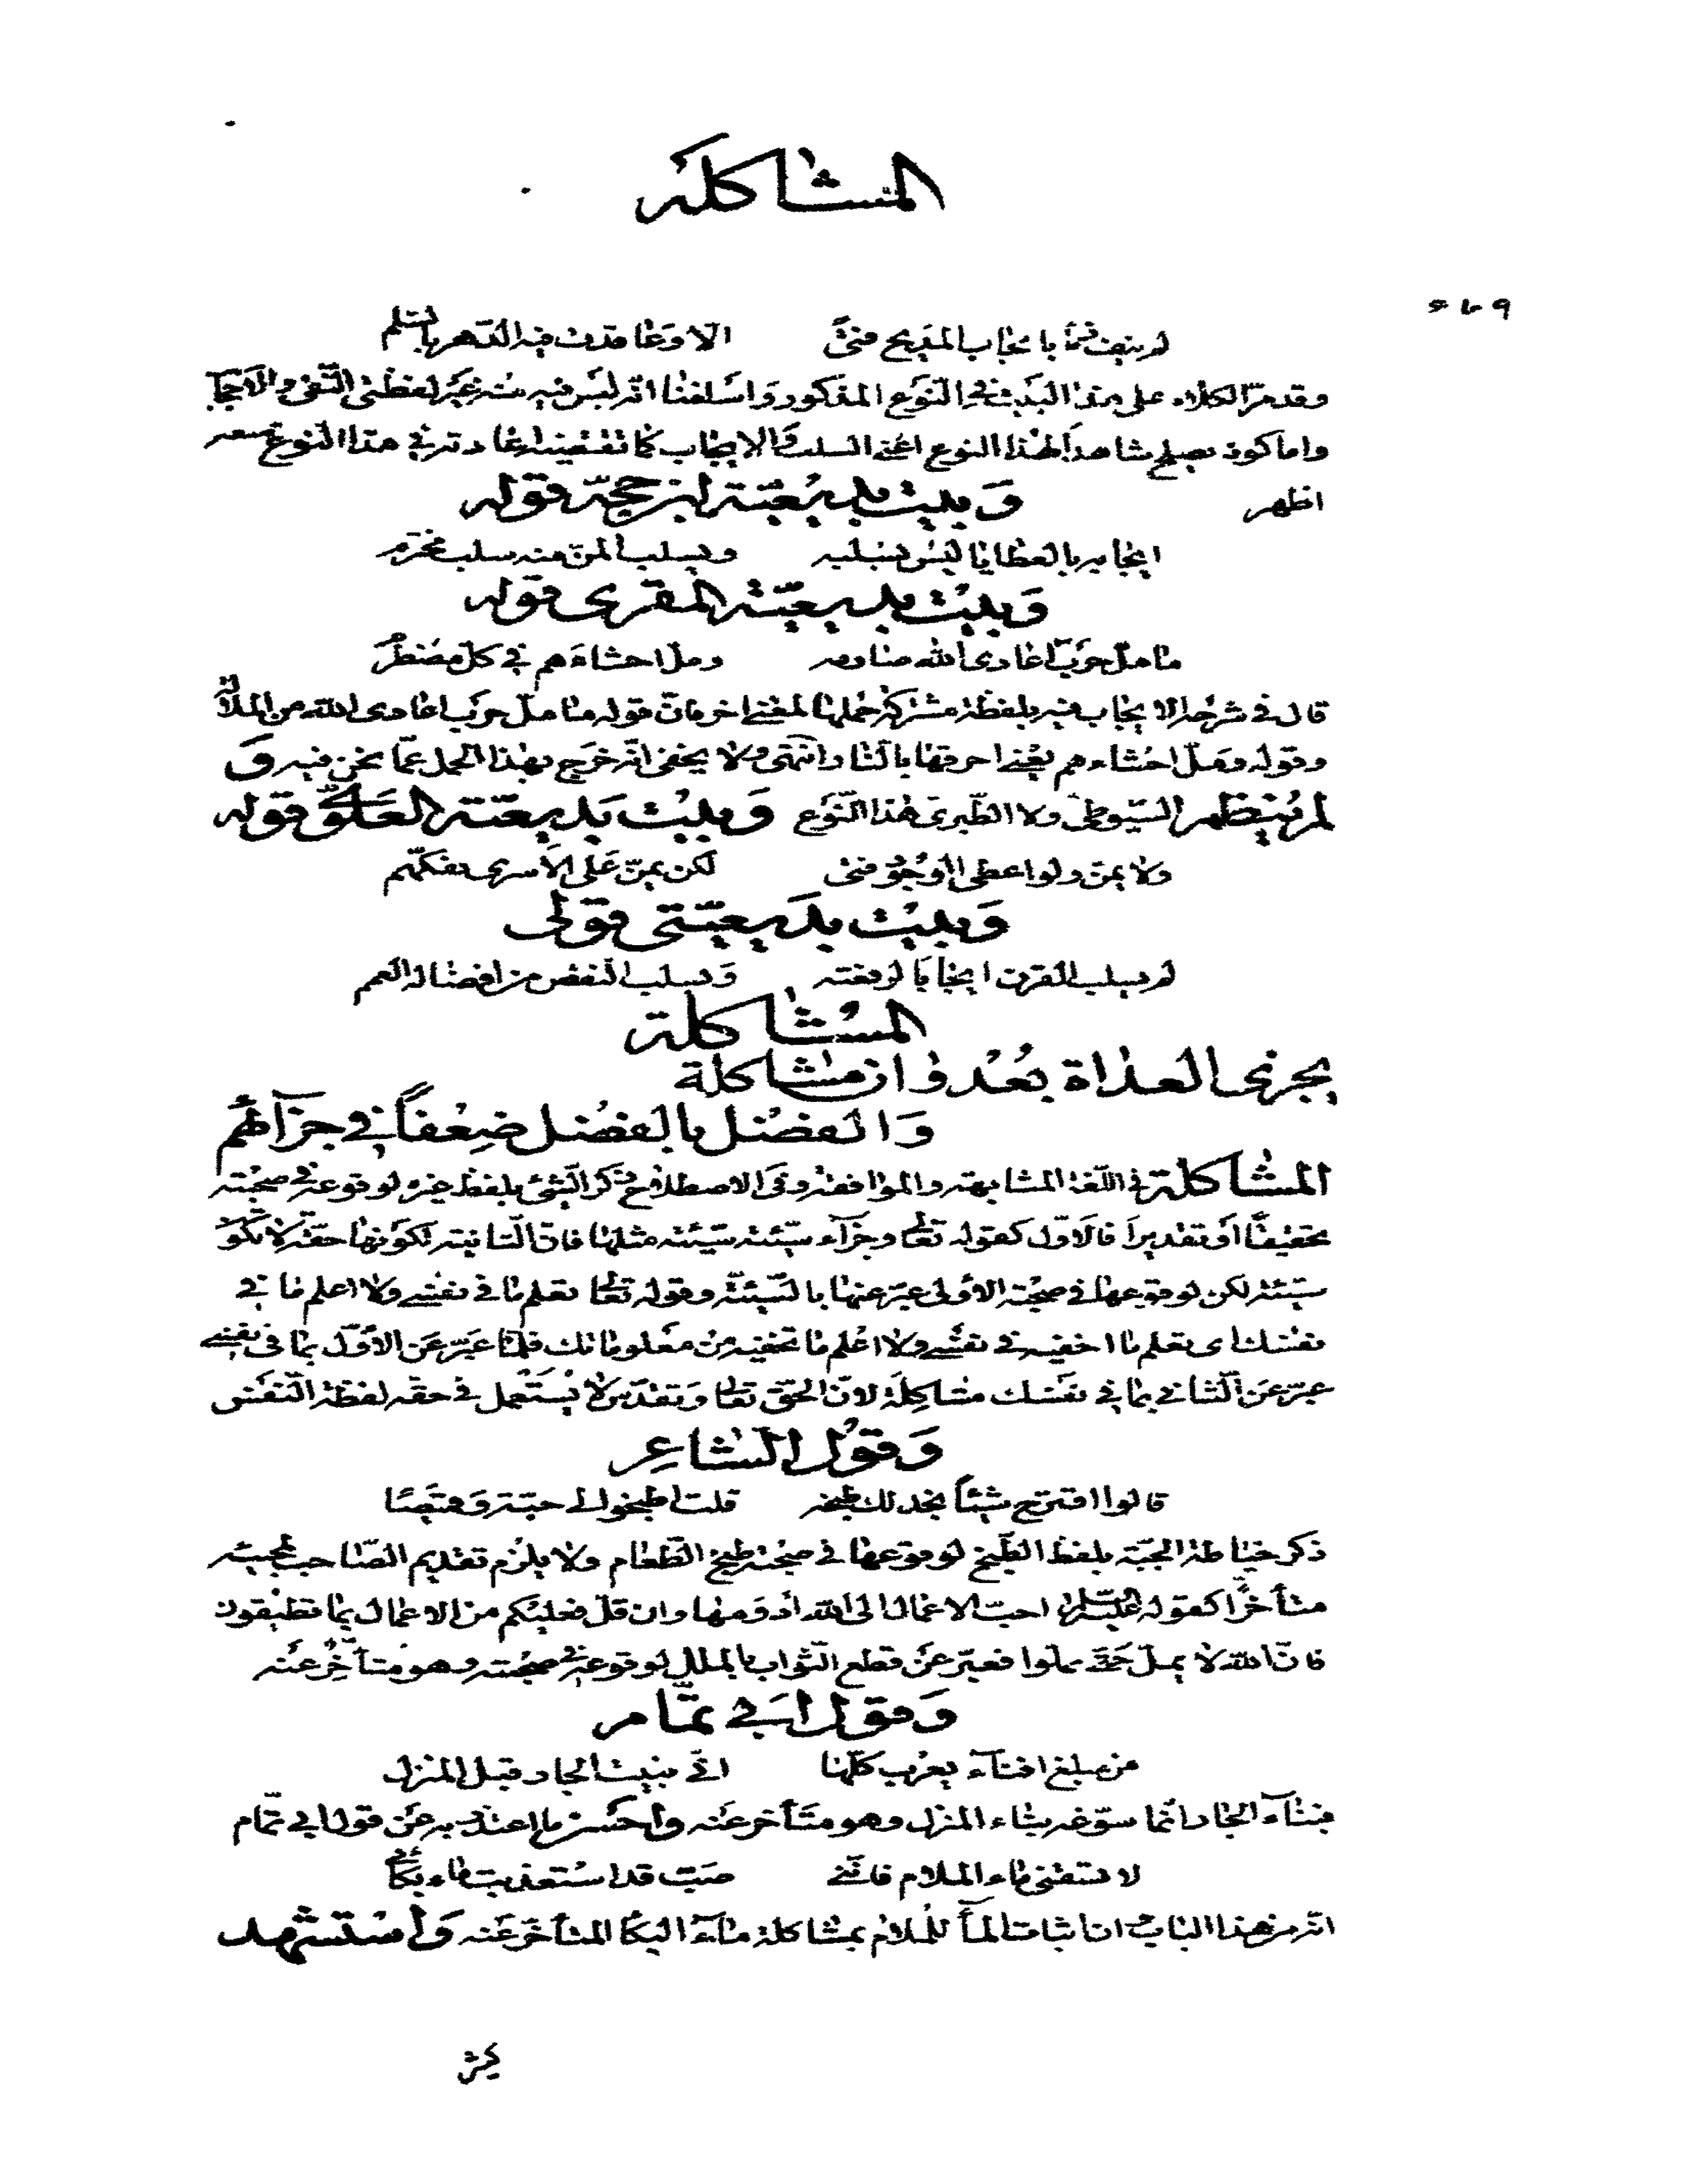 المشاكله
٥٦٩
لم ينف ذما بايجاب المديح فتى الا وعاقدت فيه الدهر بالسلم
وقد مر الكلام على هذا البيت في النوع المذكور واسلفنا انه ليس فيه منه غير لفظتى النفى والايجاب
واما كونه يصلح شاهدا لهذا النوع اعنى السلب والايجاب كما تقتضيه اعادته في هذا النوع
اظهر وبيت بديعية ابن حجة قوله
ايجابه بالعطايا ليس يسلبه ويسلب المن منه سلب محترم
وبيت بديعية المقرى قوله
ما مل حرب اعادى الله صارمه ومل احشاءهم في كل مضطرم
قال في شرحه الايجاب فيه بلفظة مشتركة حملها لمعنى اخر فان قوله ما مل حرب اعادى الله من الملالة
وقوله ومل احشاءهم يعنى احرقها بالنار انتهى ولا يخفى انه خرج بهذا الحمل عما نحن فيه و
لم ينظم السيوطى ولا الطبرى هذا النوع وبيت بديعية العلوى قوله
ولا يمن ولو اعطى الوجود فتى لكن يمن على الاسرى بفكهم
وبيت بديعيتى قولى
لم يسلب القرن ايجابا لرفعته ويسلب النقص من افضاله العمم
المشاكلة
يجزى العداة بعدوان مشاكلة
والفضل بالفضل ضعفا في جزآئهم
المشاكلة في اللغة المشابهة والموافقة وفى الاصطلاح ذكر الشئ بلفظ غيره لوقوعه في صحبته
تحقيقا أو تقديرا فالاول كقوله تعالى وجزآء سيئة سيئة مثلها فان الثانية لكونها حقة لا تكون
سيئة لكن لوقوعها في صحبة الاولى عبر عنها بالسيئة وقوله تعالى تعلم ما في نفسى ولا اعلم ما في
نفسك اى تعلم ما اخفيه في نفسى ولا اعلم ما تخفيه من معلوماتك فلما عبر عن الاول بما في نفسى
عبر عن الثانى بما في نفسك مشاكلة لان الحق تعالى وتقدس لا يستعمل في حقه لفظة النفس
وقول الشاعر
قالوا اقترح شيئا نجد لك طبخه قلت اطبخوا لى جبة وقميصا
ذكر خياطة الجبة بلفظ الطبخ لوقوعها في صحبة طبخ الطعام ولا يلزم تقديم الصاحب لمجيئه
متأخرا كقوله عليه السلام احب الاعمال الى الله ادومها وان قل فعليكم من الاعمال بما تطيقون
فان الله لا يمل حتى تملوا فعبر عن قطع الثواب بالملل لوقوعه في صحبته وهو متأخر عنه
وقول ابى تمام
من مبلغ افنآء يعرب كلها انى بنيت الجار قبل المنزل
فبنآء الجار انما سوغه بناء المنزل وهو متأخر عنه واحسن ما اعتذر به عن قول ابى تمام
لا تسقنى ماء الملام فاننى صب قد استعذبت ماء بكائى
انه من هذا الباب اذ اثبات المآء للملام بمشاكلة مآء البكا المتأخر عنه واستشهد
كثير